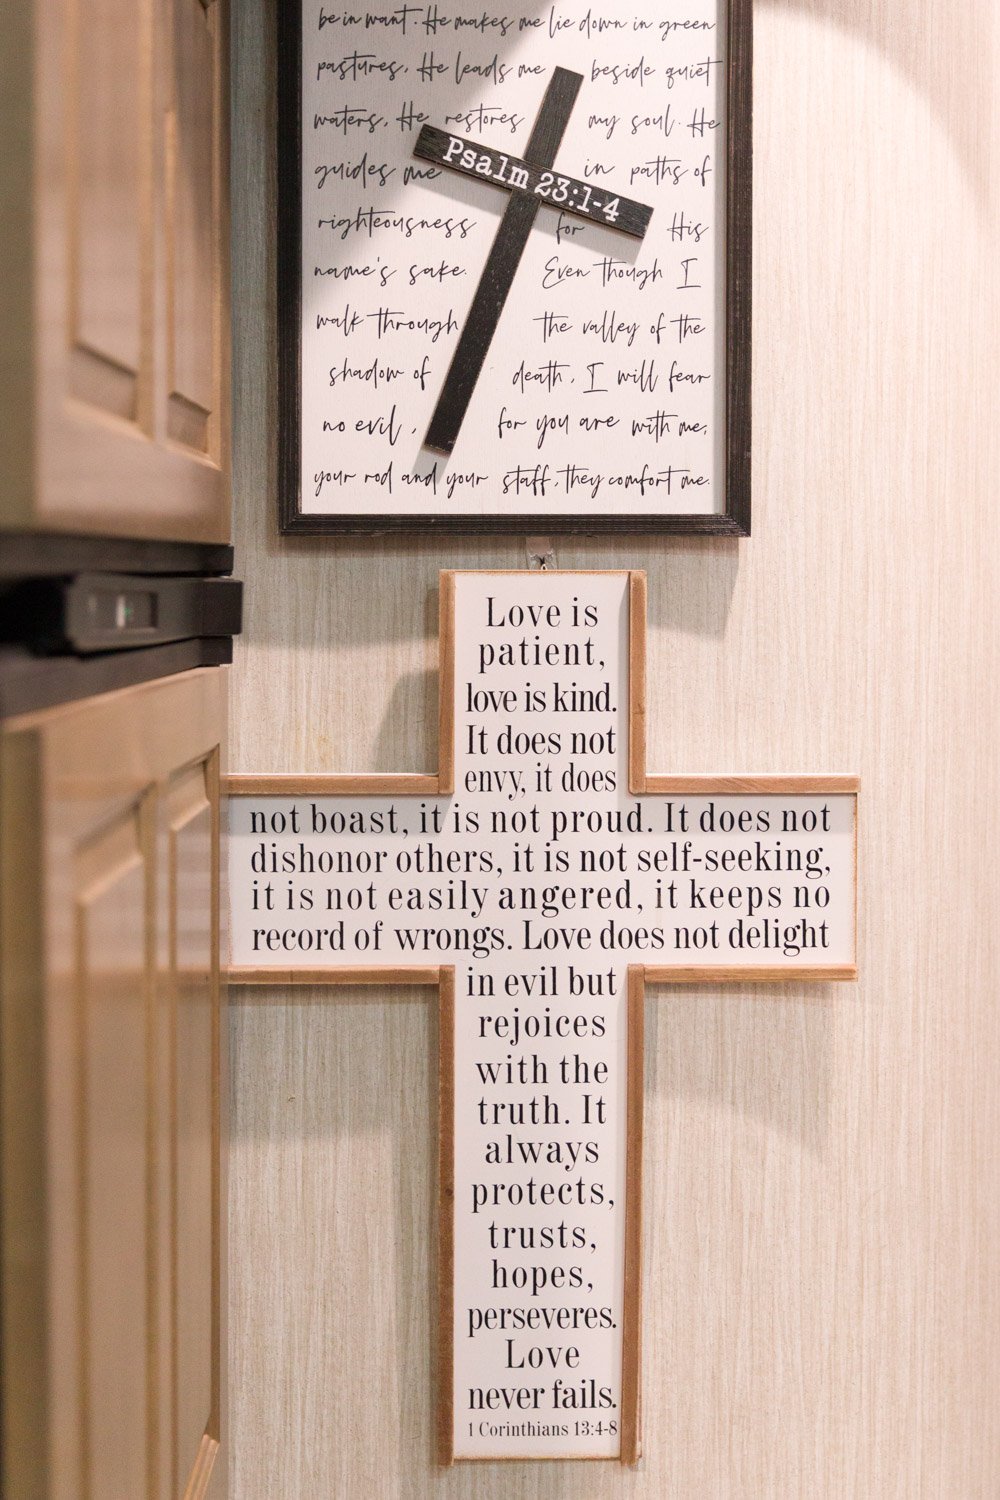 be in want. He makes me lie down in green
pastures, He leads me beside quiet
waters, He restores my soul. He
guides me in paths of
righteousness for His
name's sake. Even though I
walk through the valley of the
shadow of death, I will fear
no evil, for you are with me,
your rod and your staff, they comfort me.
Psalm 23:1-4
Love is
patient,
love is kind.
It does not
envy, it does
not boast, it is not proud. It does not
dishonor others, it is not self-seeking,
it is not easily angered, it keeps no
record of wrongs. Love does not delight
in evil but
rejoices
with the
truth. It
always
protects,
trusts,
hopes,
perseveres.
Love
never fails.
1 Corinthians 13:4-8